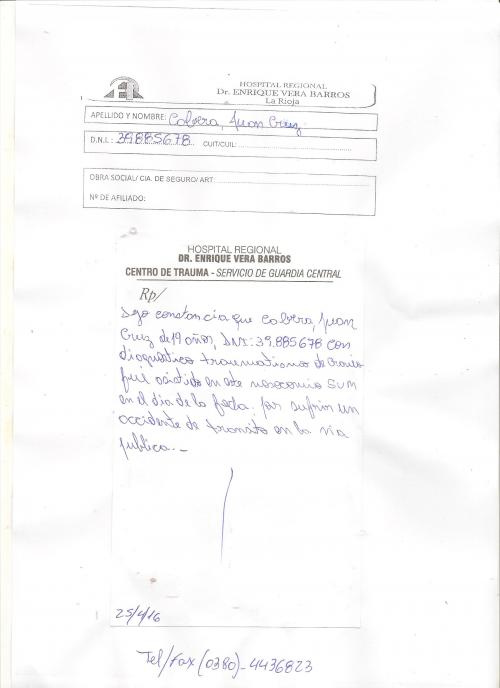 HOSPITAL REGIONAL
Dr. ENRIQUE VERA BARROS
La Rioja
APELLIDO Y NOMBRE: Cabrera, Juan Cruz
D.N.I.: 39.885678 CUIT/CUIL:
OBRA SOCIAL/ CIA. DE SEGURO/ ART:
Nº DE AFILIADO:
HOSPITAL REGIONAL
DR. ENRIQUE VERA BARROS
CENTRO DE TRAUMA - SERVICIO DE GUARDIA CENTRAL
Rp/
Dejo constancia que Cabrera, Juan
Cruz de 19 años, DNI: 39.885678 con
diagnostico traumatismo de Craneo
fue asistido en este nosocomio
en el dia de la fecha. por sufrir un
accidente de transito en la via
publica. _
25/4/16
Tel/fax (0380)-4436823